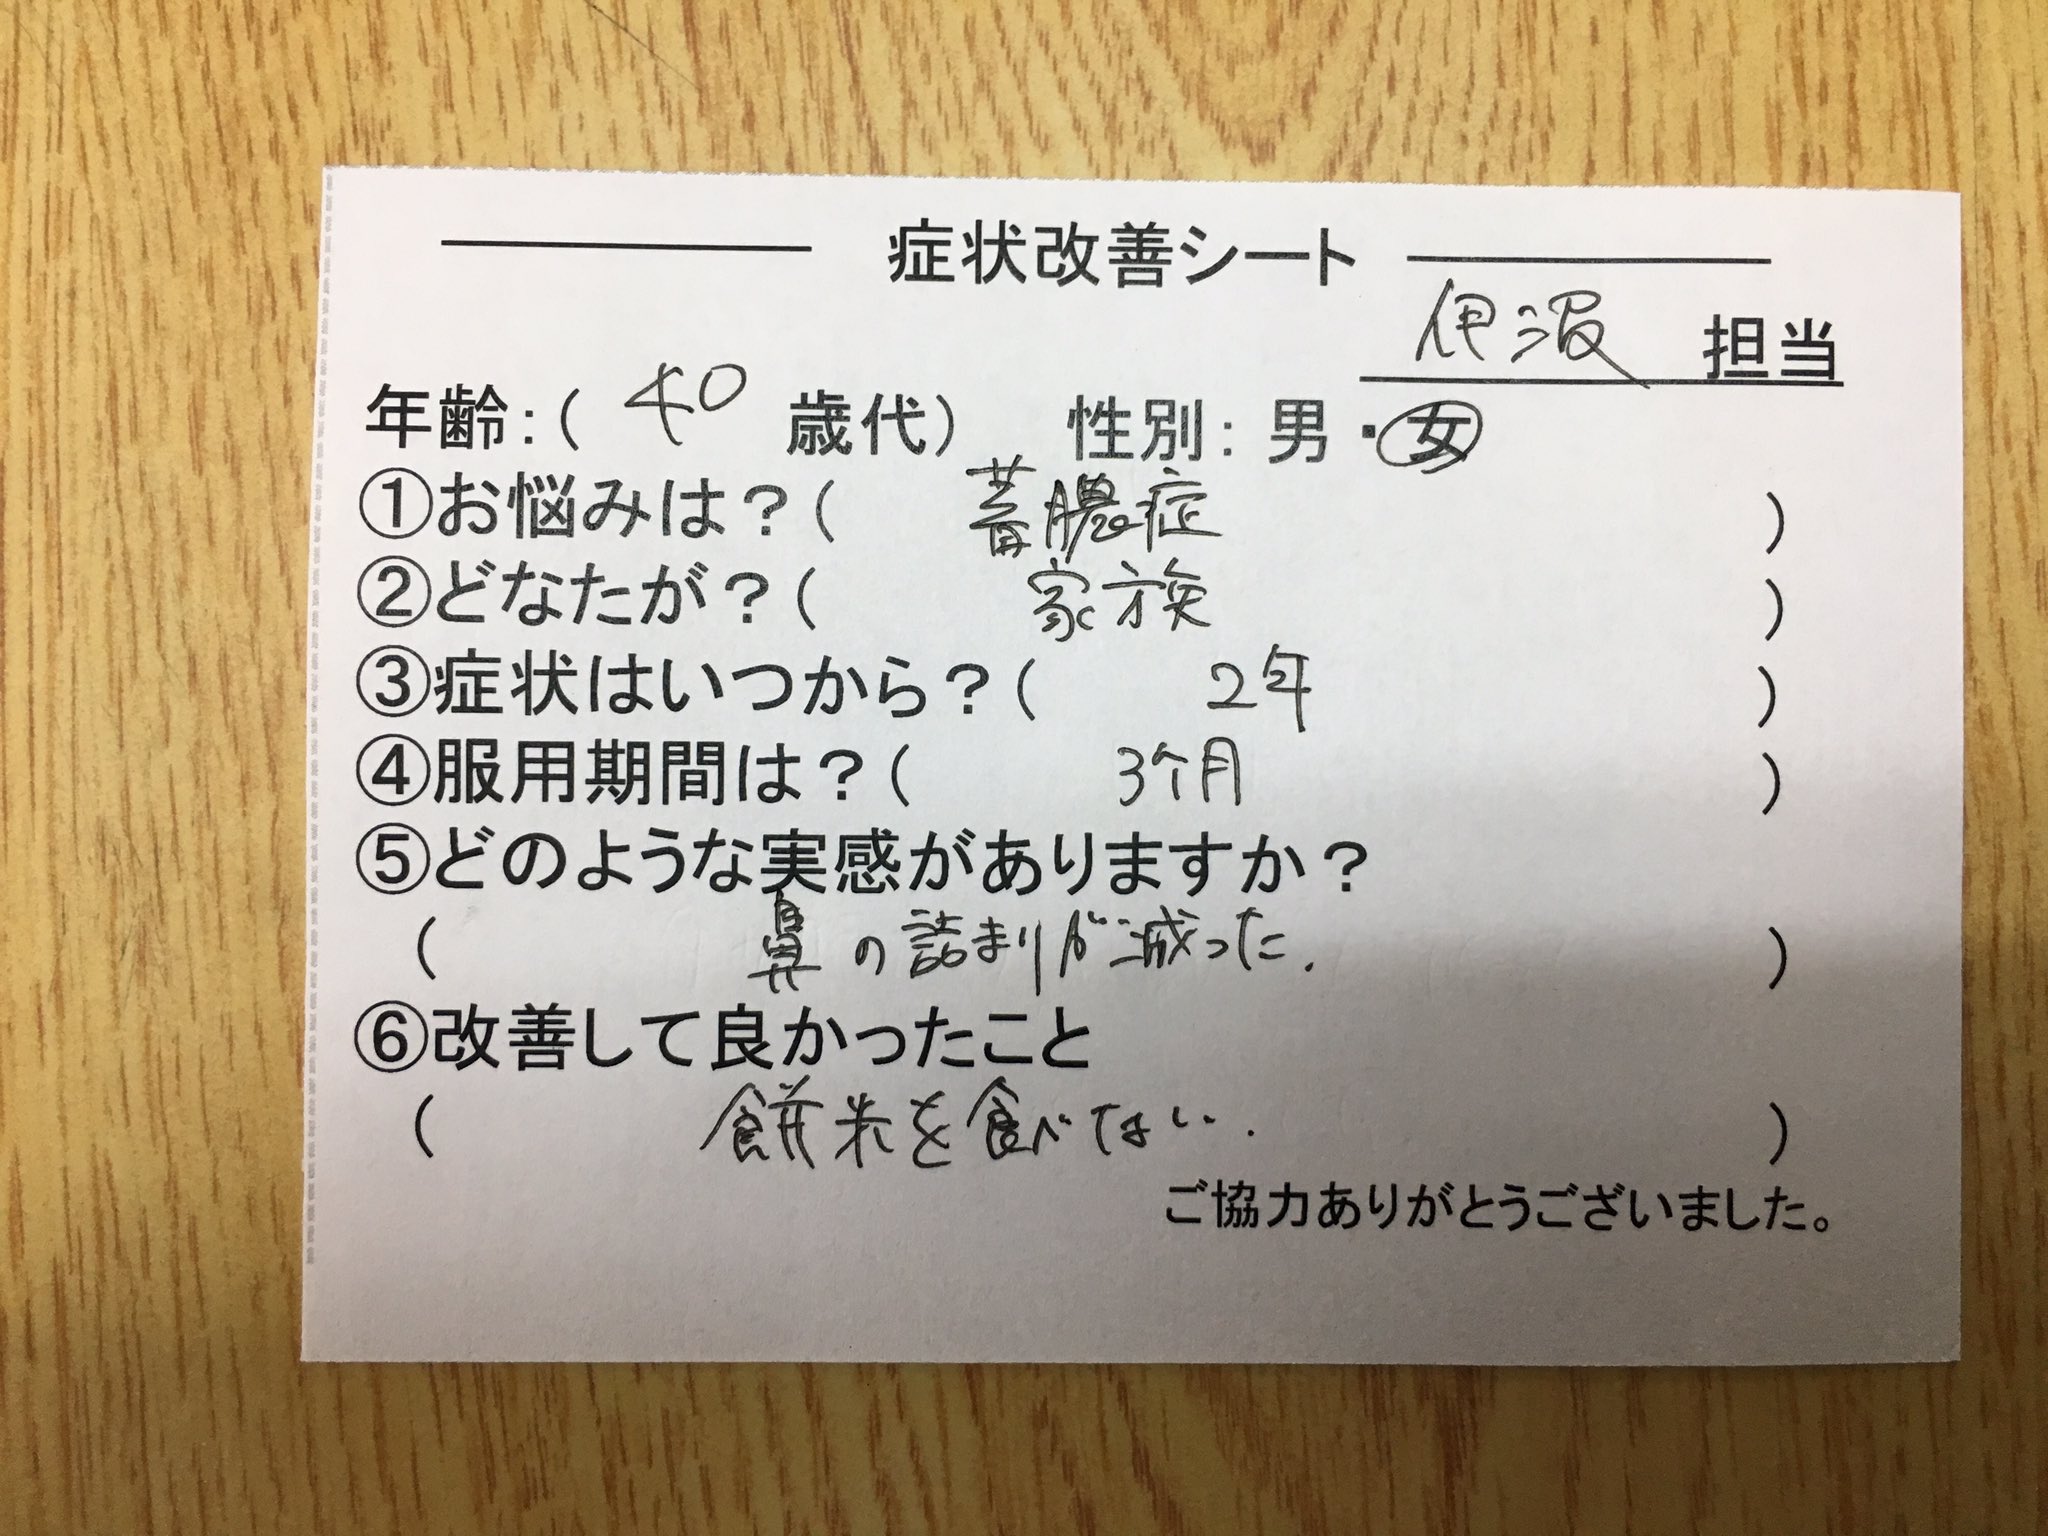 症状改善シート
伊波 担当
年齢：( 40 歳代) 性別：男・女
①お悩みは？( 蓄膿症 )
②どなたが？( 家族 )
③症状はいつから？( 2年 )
④服用期間は？( 3ケ月 )
⑤どのような実感がありますか？
( 鼻の詰まりが減った. )
⑥改善して良かったこと
( 餅米を食べない. )
ご協力ありがとうございました。